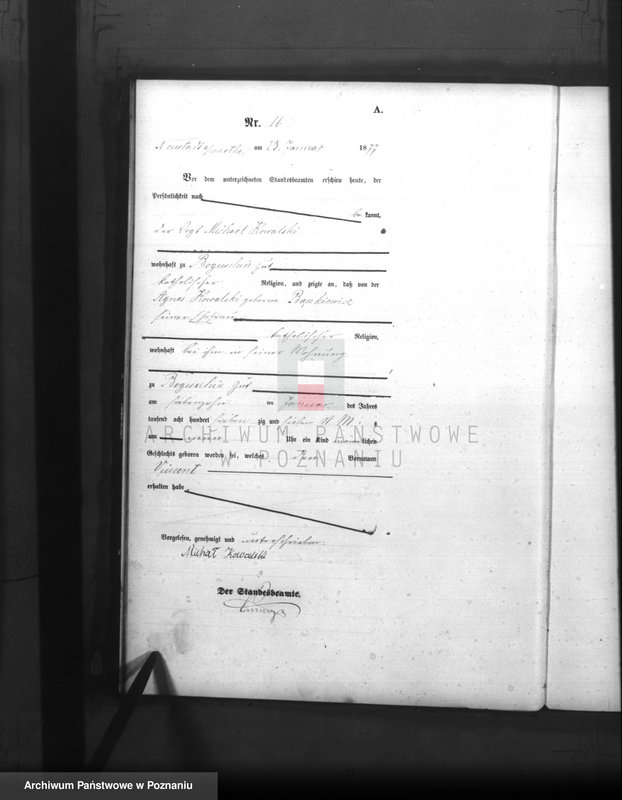 A.
Nr. 16
am 23. Januar 1877
Vor dem unterzeichneten Standesbeamten erschien heute, der
Persönlichkeit nach
be kannt,
der Vogt Michael Kowalski
wohnhaft zu Boguslin Gut
katholischer Religion, und zeigte an, daß von der
Agnes Kowalski geborene
seiner Ehefrau
katholischer Religion,
wohnhaft bei ihm in seiner Wohnung
zu Boguslin Gut
am siebenzehn ten Januar des Jahres
tausend acht hundert sieben zig und sieben N M:
um Uhr ein Kind männlichen
Geschlechts geboren worden sei, welches den Vornamen
Vincent
erhalten habe
Vorgelesen, genehmigt und unterschrieben:
Michał Kowalski
Der Standesbeamte.
ARCHIWUM PAŃSTWOWE
W POZNANIU
Archiwum Państwowe w Poznaniu